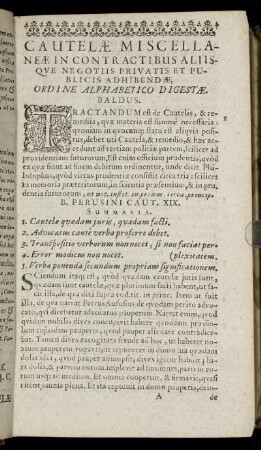 CAUTELÆ MISCELLA-
NEÆ IN CONTRACTIBUS ALIIS-
QVE NEGOTIIS PRIVATIS ET PU-
BLICIS ADHIBENDÆ,
ORDINE ALPHABETICO DIGESTÆ.
BALDUS.
TRACTANDUM est de Cautelis, & re-
mediis, quæ materia est summè necessaria:
quoniam in quocunque statu est aliquis posi-
tus, debet uti Cautela, & remedio, & hæc ac-
cedunt ad tertiam politiæ partem, scilicet ad
providentiam futurorum, Est enim officium prudentis, quòd
ea quæ sunt ad finem debitum ordinentur, unde dicit Phi-
losophus, quòd virtus prudentiæ consistit circa tria: scilicet
in memoria præteritorum, in scientia præsentium, & in pru-
dentia futurorum,
B. PERUSINI CAUT. XIX.
SUMMARIA.
1. Cautela quædam juris, quædam facti.
2. Advocatus cautè verba proferre debet.
3. Transpositio verborum non nocet, si non faciat per-
4. Error modicus non nocet. (plexitatem.
5. Verba ponenda secundum propriam significationem.
SCiendum itaque est, quòd quædam cautelæ juris sunt,
quædam sunt cautelæ, quæ plurimum facti habent, ut fa-
cit illa, de qua dixi supra eod. tit. in princ. Item ut fuit
illa, qua narrat Petrus Ausufus de quodam perito advoca-
to, qui dicebatur advocatus pauperum. Narrat enim, quòd
quidam nobilis dives concupivit habere quoddam prædium
cujusdam pauperis, quòd pauper alienare contradice-
bat. Tandem dives excogitata fraude ad hoc, ut haberet no-
mum pauperis, rogavit, ut reponeret in domo sua quædam
dolia olei, quòd pauper
dolia, & partim eorum implere
eorum usque ad medium. Et omnia cooperuit, & firmavit, quasi
essent omnia plena. Et ita reposuit in domo pauperis, dein-
A de